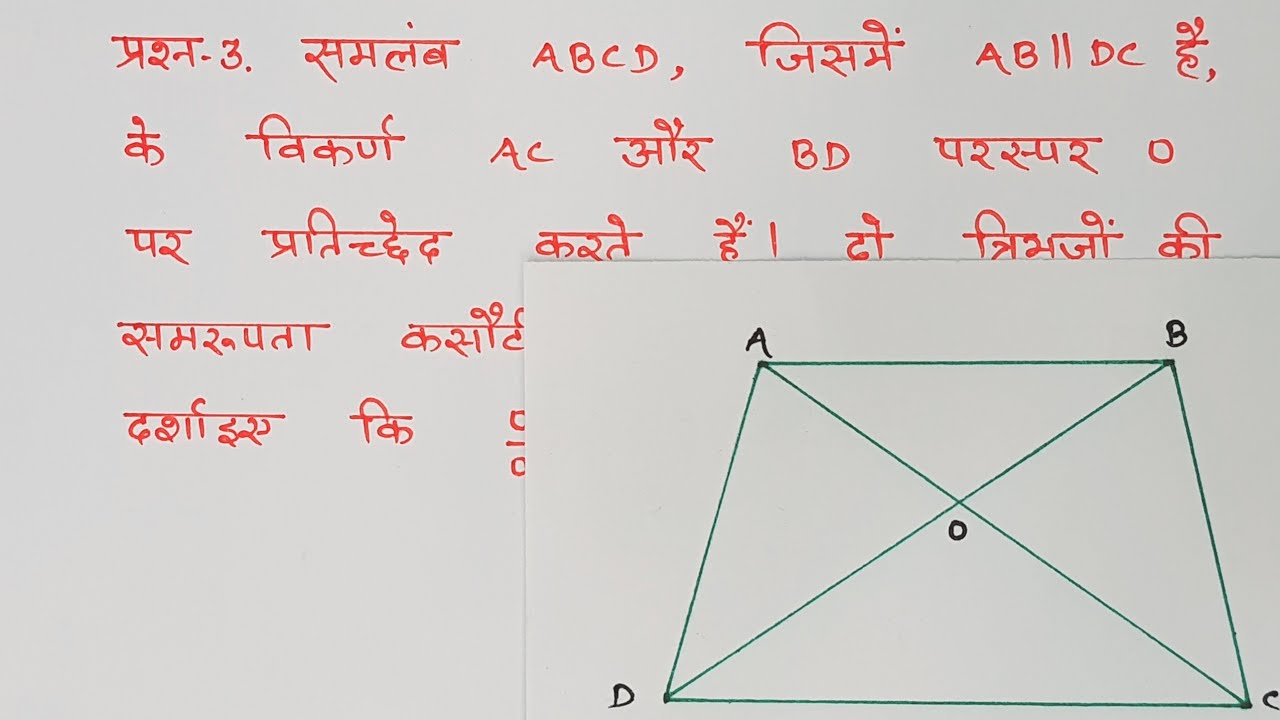 प्रश्न-3. समलंब ABCD, जिसमें AB||DC है,
के विकर्ण AC और BD परस्पर O
पर प्रतिच्छेद करते हैं। दो त्रिभजों की
समरूपता
दर्शाइए कि
A
B
O
D
C